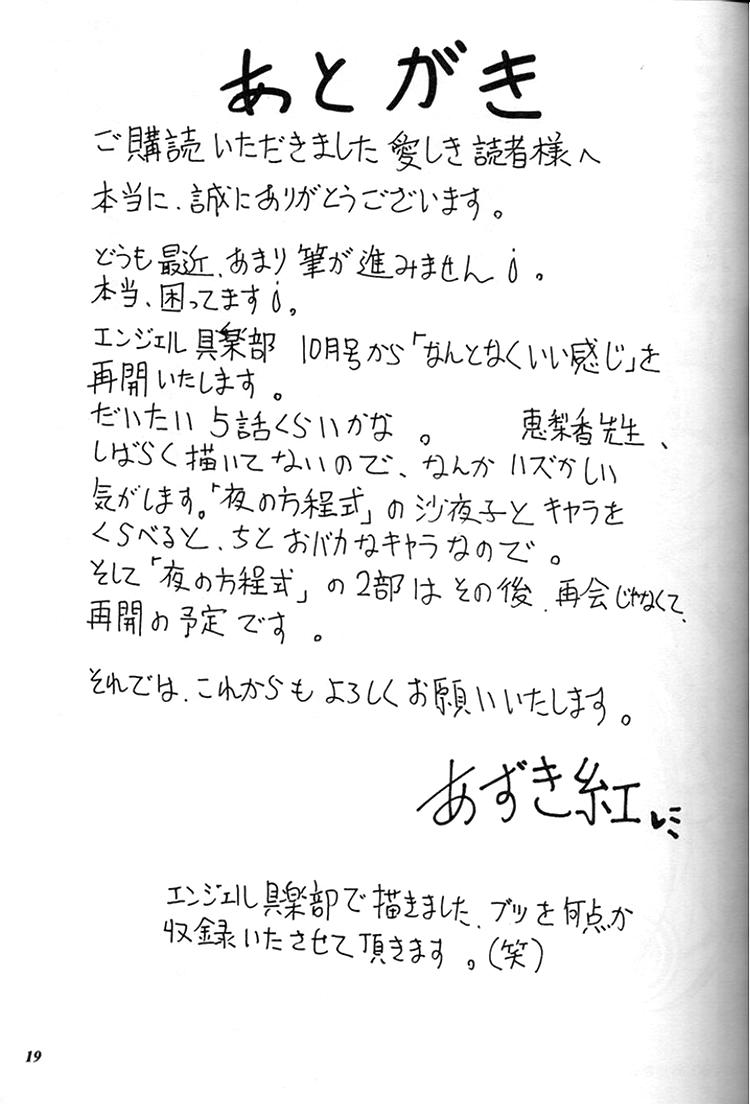 あとがき
ご購読いただきました愛しき読者様へ
本当に、誠にありがとうございます。
どうも最近、あまり筆が進みませんi。
本当、困ってますi。
エンジェル倶楽部 10月号から「なんとなくいい感じ」を
再開いたします。
だいたい5話くらいかな。 恵梨香先生、
しばらく描いてないので、なんかハズかしい
気がします。「夜の方程式」の沙夜子とキャラを
くらべると、ちとおバカなキャラなので。
そして「夜の方程式」の2部はその後、再会じゃなくて、
再開の予定です。
それでは、これからもよろしくお願いいたします。
あずき紅
エンジェル倶楽部で描きました、ブツを何点か
収録いたさせて頂きます。(笑)
19